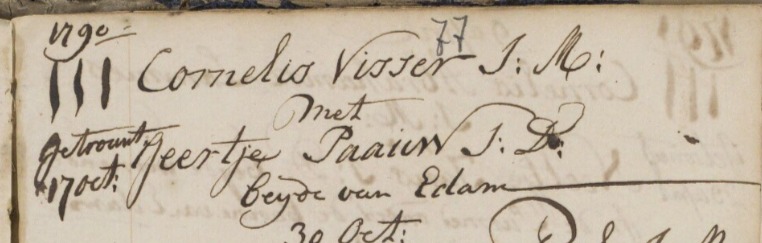 1790
77
III Cornelis Visser J: M:
met
getrouwt Geertje Paauw J: D:
17 Oct: beyde van Edam
30 Oct: